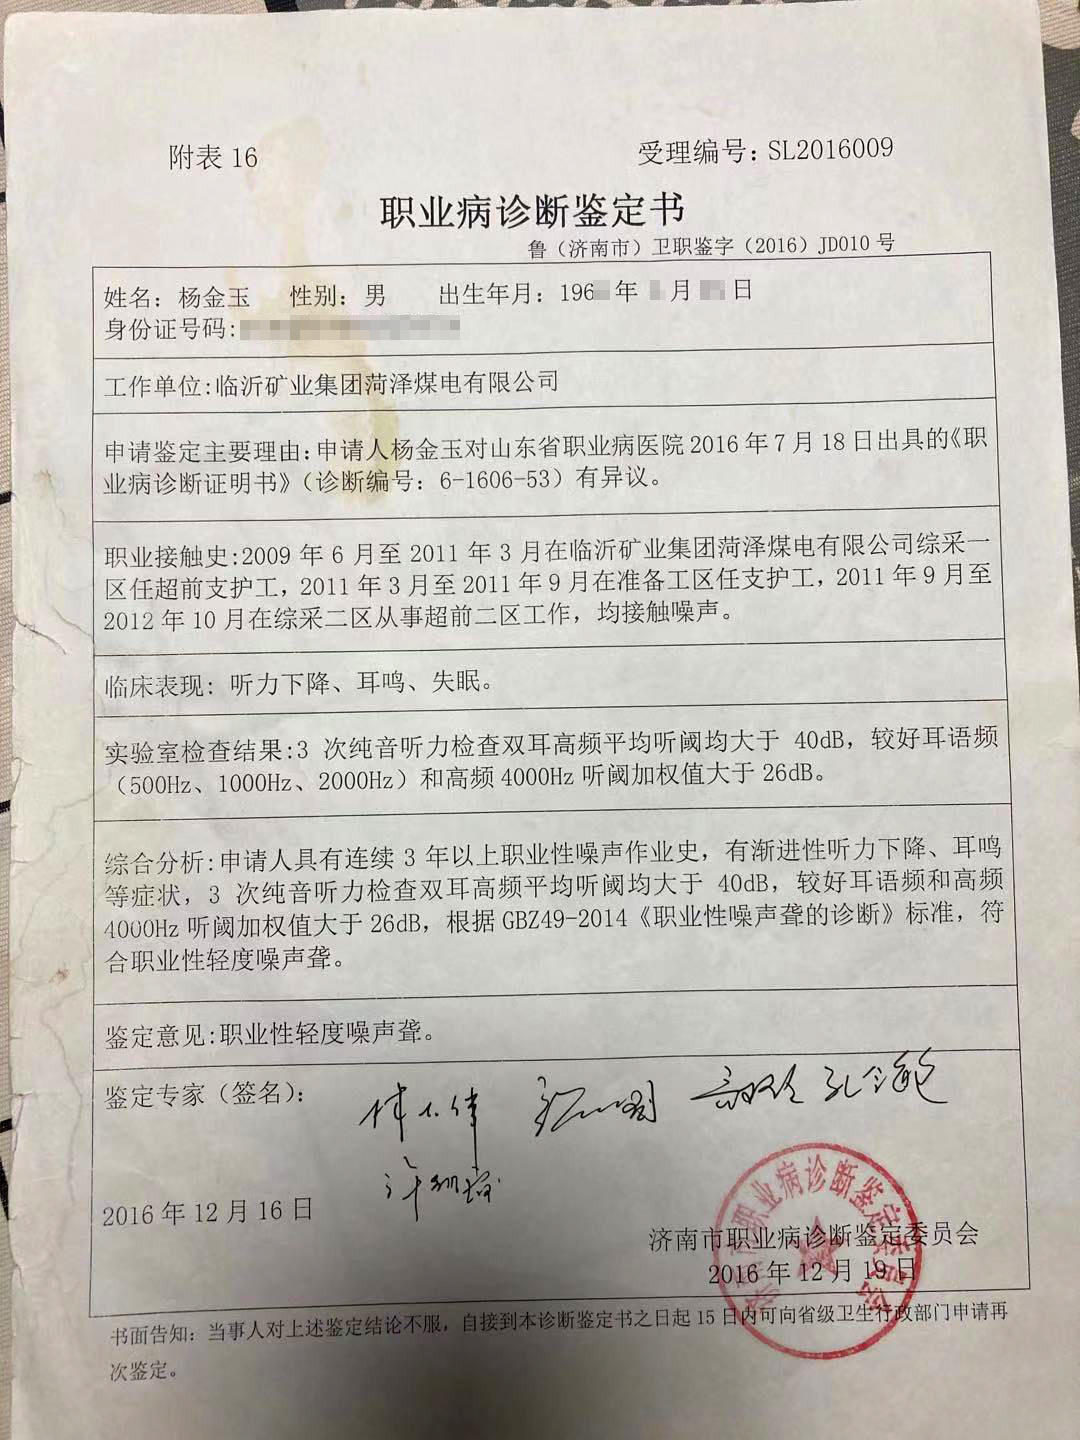 附表 16
受理编号：SL2016009
职业病诊断鉴定书
鲁（济南市）卫职鉴字（2016）JD010 号
姓名：杨金玉 性别：男 出生年月：196 年 月 日
身份证号码:
工作单位:临沂矿业集团菏泽煤电有限公司
申请鉴定主要理由:申请人杨金玉对山东省职业病医院 2016 年 7 月 18 日出具的《职
业病诊断证明书》（诊断编号：6-1606-53）有异议。
职业接触史:2009 年 6 月至 2011 年 3 月在临沂矿业集团菏泽煤电有限公司综采一
区任超前支护工，2011 年 3 月至 2011 年 9 月在准备工区任支护工，2011 年 9 月至
2012 年 10 月在综采二区从事超前二区工作，均接触噪声。
临床表现：听力下降、耳鸣、失眠。
实验室检查结果:3 次纯音听力检查双耳高频平均听阈均大于 40dB，较好耳语频
（500Hz、1000Hz、2000Hz）和高频 4000Hz 听阈加权值大于 26dB。
综合分析:申请人具有连续 3 年以上职业性噪声作业史，有渐进性听力下降、耳鸣
等症状，3 次纯音听力检查双耳高频平均听阈均大于 40dB，较好耳语频和高频
4000Hz 听阈加权值大于 26dB，根据 GBZ49-2014《职业性噪声聋的诊断》标准，符
合职业性轻度噪声聋。
鉴定意见:职业性轻度噪声聋。
鉴定专家（签名）：
2016 年 12 月 16 日
济南市职业病诊断鉴定委员会
2016 年 12 月 19 日
书面告知：当事人对上述鉴定结论不服，自接到本诊断鉴定书之日起 15 日内可向省级卫生行政部门申请再
次鉴定。